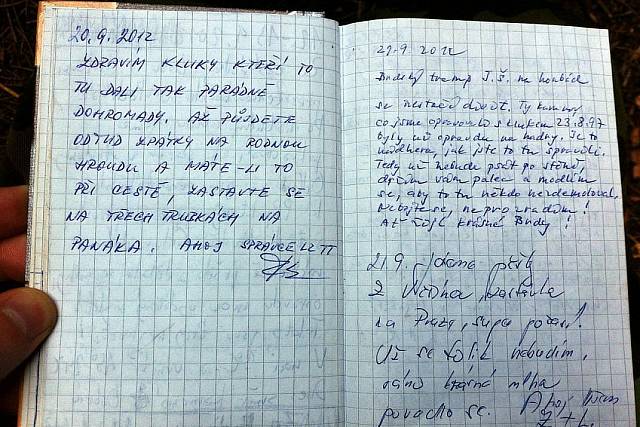 20.9.2012
ZDRAVÍM KLUKY KTEŘÍ TO
TU DALI TAK PARÁDNĚ
DOHROMADY. AŽ PŮJDETE
ODTUD ZPÁTKY NA RODNOU
HROUDU A MÁTE-LI TO
PŘI CESTĚ, ZASTAVTE SE
NA TŘECH TRUBKÁCH NA
PANÁKA. AHOJ SPRÁVCE
29.9. 2012
tramp J.Š. na
se nestačí divit. Ty kamny
co jsme opravovali s klukem 23.8.97
byly už opravdu na hadry. Je to
nádhera, jak jste to tu spravili.
Tedy už nebudu psát po stěně,
držím vám palce a modlím
se, aby to tu někdo nezdemoloval.
Nebojte se, neprozradím!
Ať žijí krásné Budy!
21.9.
z
na supr počasí!
Už se tolik nebudím,
ráno krásná mlha
povaluje se. Ahoj